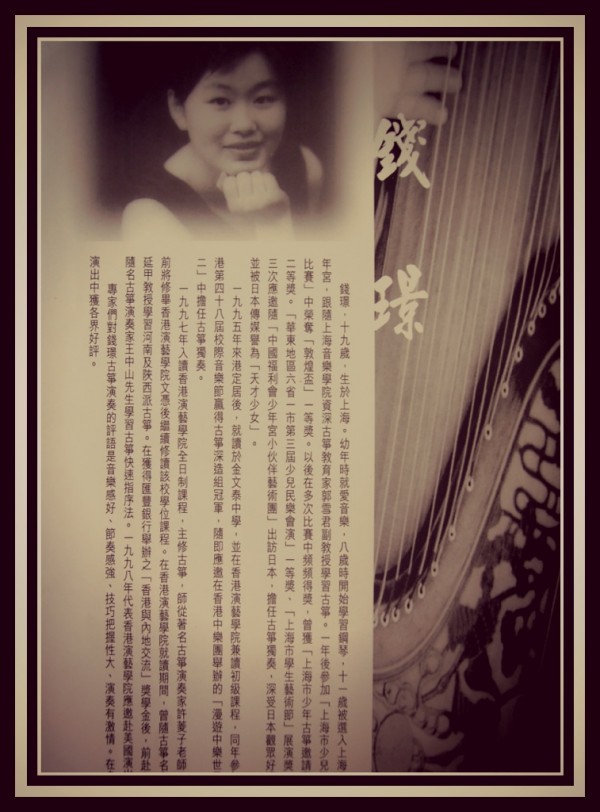 錢璟
錢璟，十九歲，生於上海。幼年時就愛音樂，八歲時開始學習鋼琴，十一歲被選入上海
年宮，跟隨上海音樂學院資深古箏教育家郭雪君副教授學習古箏。一年後參加「上海市少兒
比賽」中榮奪「敦煌盃」一等獎。以後在多次比賽中頻頻得獎，曾獲「上海市少年古箏邀請
二等獎。「華東地區六省一市第三屆少兒民樂會演」一等獎、「上海市學生藝術節」展演獎
三次應邀隨「中國福利會少年宮小伙伴藝術團」出訪日本，擔任古箏獨奏，深受日本觀眾好
並被日本傳媒譽為「天才少女」。
一九九五年來港定居後，就讀於金文泰中學，並在香港演藝學院兼讀初級課程，同年參
港第四十八屆校際音樂節贏得古箏深造組冠軍，隨即應邀在香港中樂團舉辦的「漫遊中樂世
二」中擔任古箏獨奏。
一九九七年入讀香港演藝學院全日制課程，主修古箏，師從著名古箏演奏家許菱子老師
前將修畢香港演藝學院文憑後繼續修讀該校學位課程。在香港演藝學院就讀期間，曾隨古箏名
延甲教授學習河南及陝西派古箏。在獲得匯豐銀行舉辦之「香港與內地交流」獎學金後，前赴
隨名古箏演奏家王中山先生學習古箏快速指序法。一九九八年代表香港演藝學院應邀赴美國演出
專家們對錢璟古箏演奏的評語是音樂感好、節奏感強、技巧把握性大、演奏有激情。在
演出中獲各界好評。